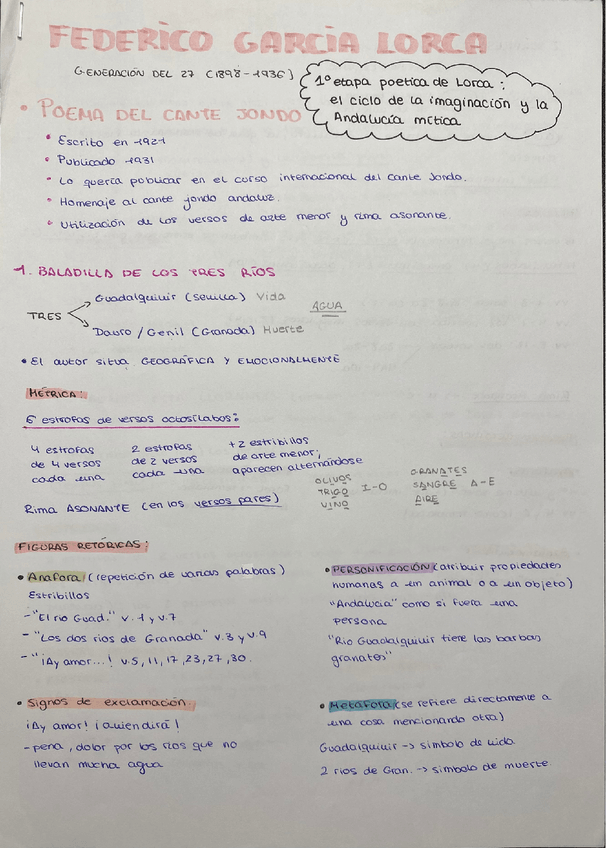 FEDERICO GARCÍA LORCA
GENERACIÓN DEL 27 (1898-1936)
1º etapa poetica de Lorca:
el ciclo de la imaginación y la
Andalucía mítica
• POEMA DEL CANTE JONDO
• Escrito en 1921
• Publicado 1931
• Lo quería publicar en el curso internacional del Cante Jondo.
• Homenaje al cante jondo andaluz.
• Utilización de los versos de arte menor y rima asonante.
1. BALADILLA DE LOS TRES RÍOS
Guadalquiuir (Sevilla) Vida
TRES
AGUA
Dauro / Genil (Granada) Muerte
• El autor situa GEOGRÁFICA Y EMOCIONALMENTE
MÉTRICA:
6 estrofas de versos octosílabos:
4 estrofas
de 4 versos
cada una
2 estrofas
de 2 versos
cada una
+2 estribillos
de arte menor,
aparecen alternándose
OLIVOS
TRIGO I-O
VINO
GRANATES
SANGRE A-E
AIRE
Rima ASONANTE (en los versos pares)
FIGURAS RETÓRICAS:
• Anáfora (repetición de varias palabras)
Estribillos
- "El rio Guad." v.1 y v.7
- "Los dos rios de Granada" v.3 y v.9
- "¡Ay amor...! v.5, 11, 17, 23, 27, 30.
• PERSONIFICACIÓN (atribuir propiedades
humanas a un animal o a un objeto)
"Andalucía" como si fuera una
persona
"Rio Guadalquiuir tiene las barbas
granates"
• Signos de exclamación.
¡Ay amor! ¡Quiendirá!
- pena, dolor por los rios que no
llevan mucha agua
• Metáfora (se refiere directamente a
una cosa mencionando otra)
Guadalquiuir -> símbolo de vida.
2 rios de Gran. -> símbolo de muerte.